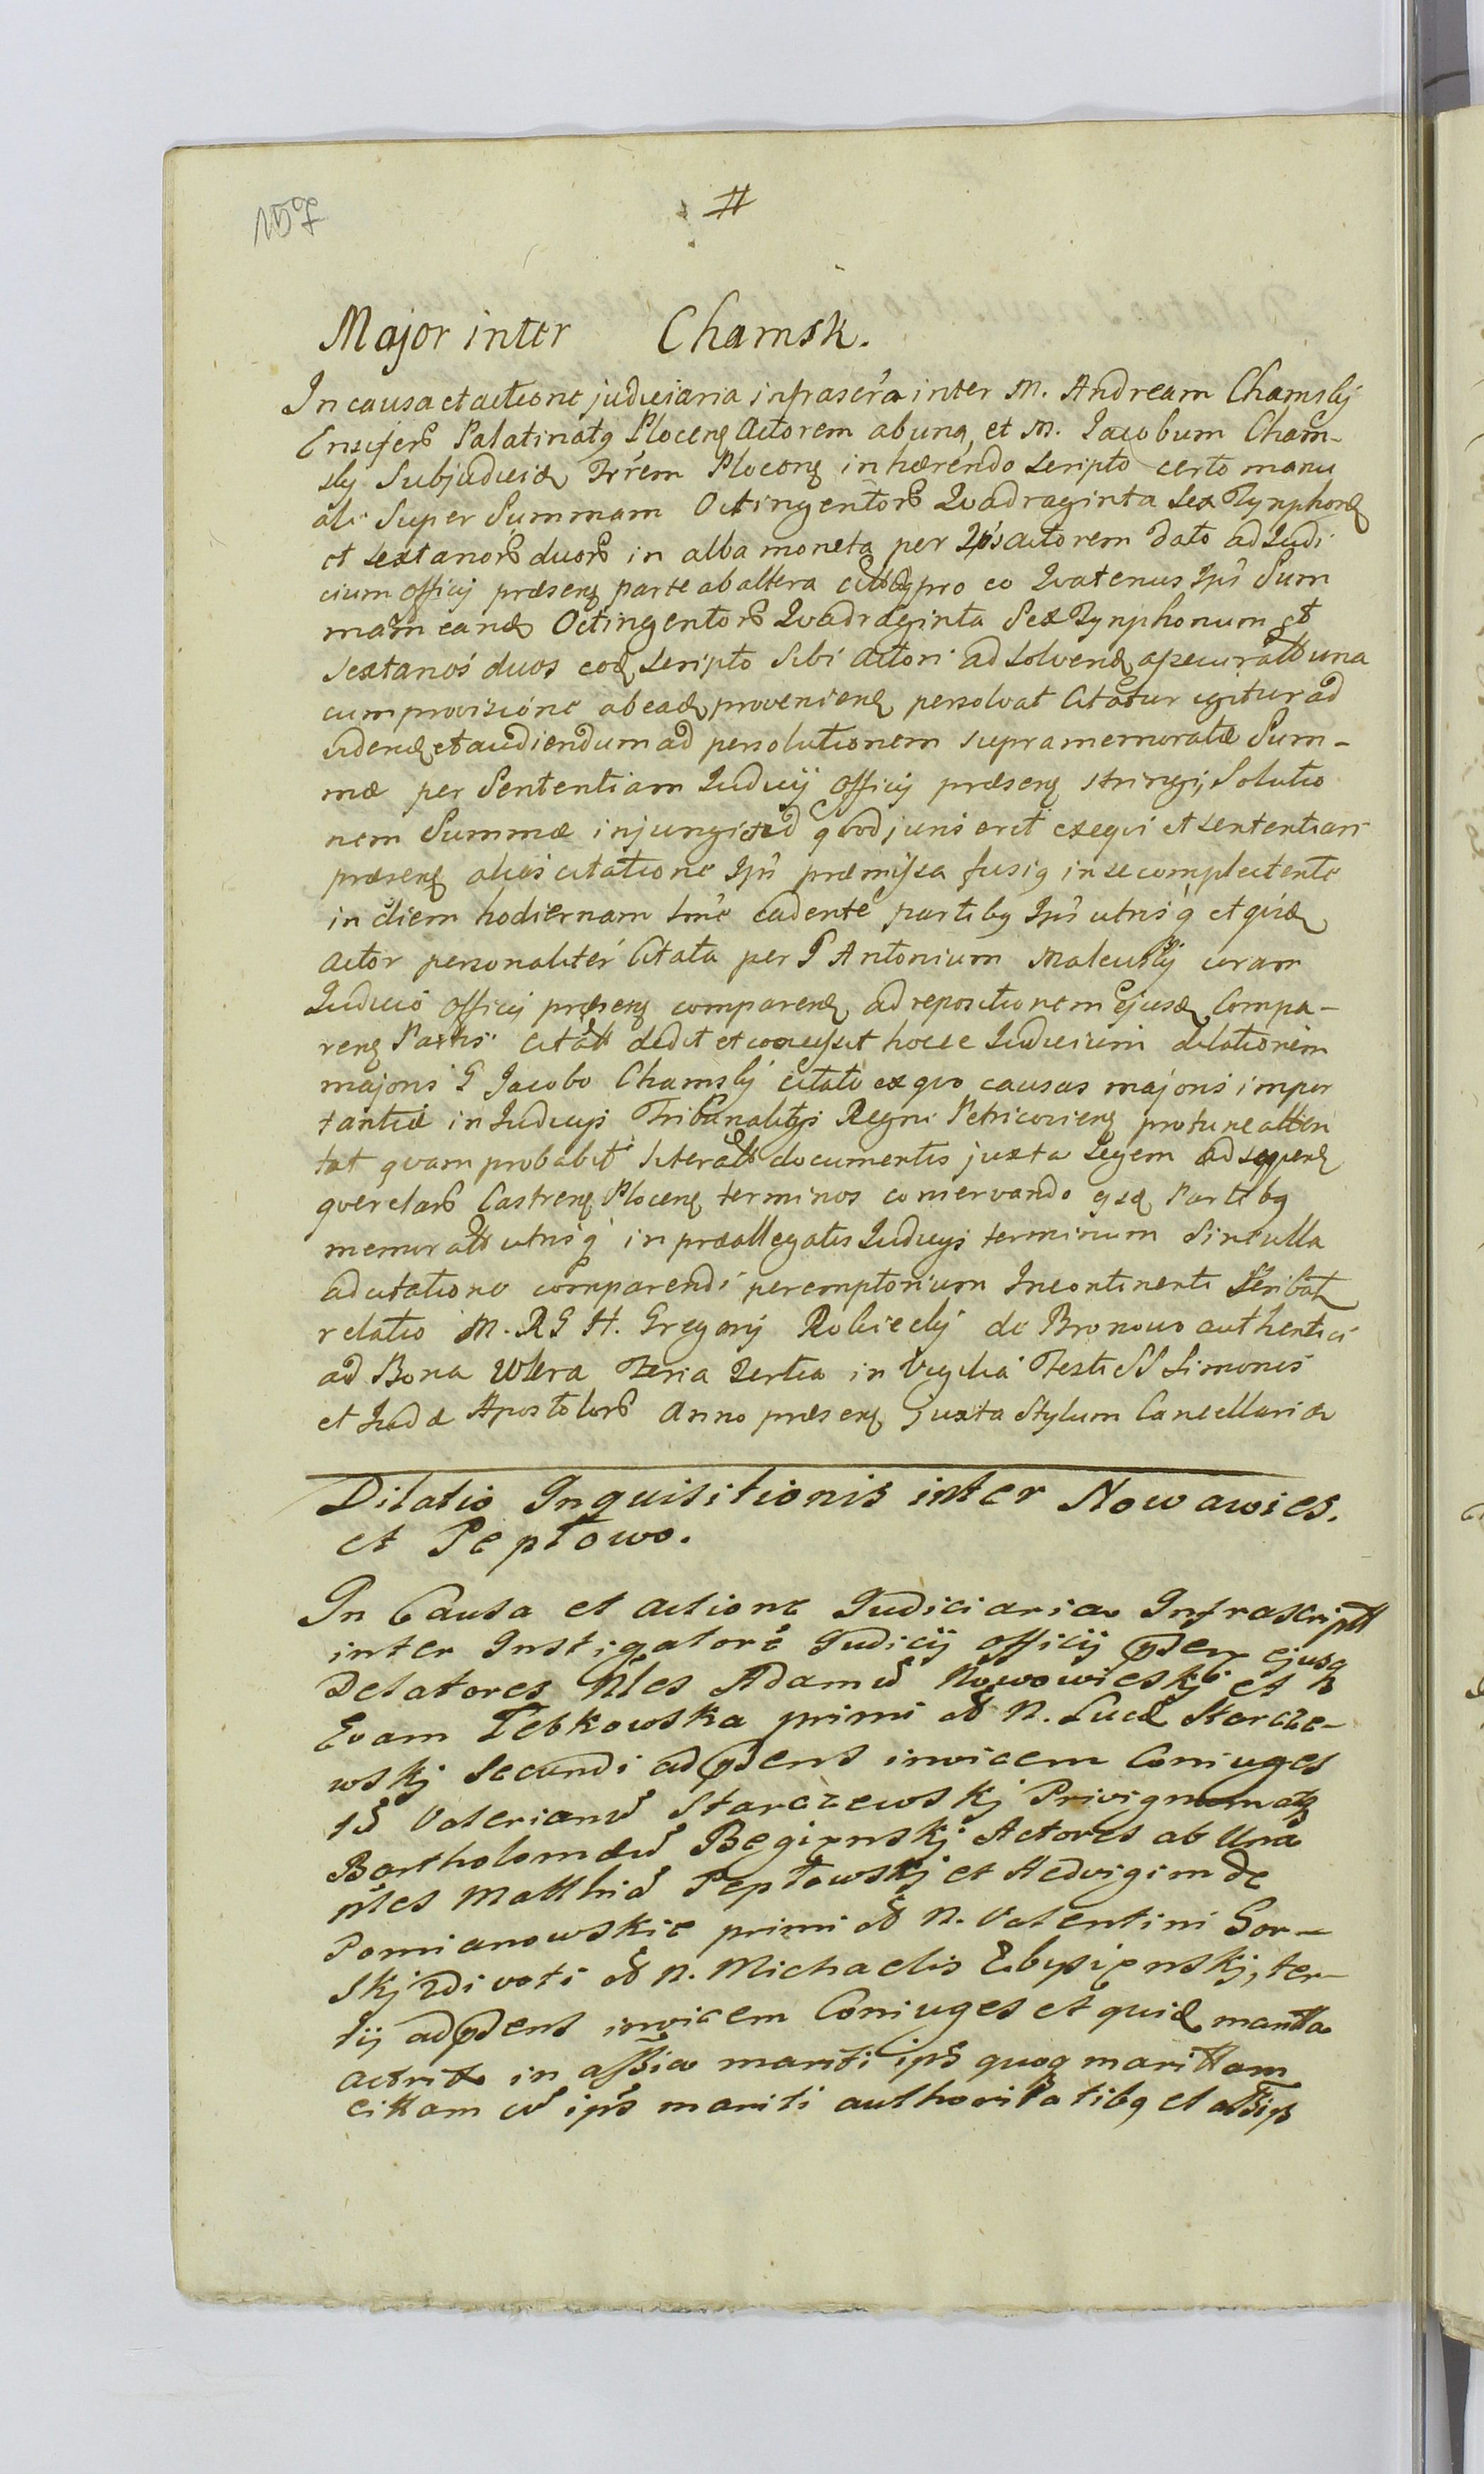 #
Major inter Chamsk.
In causa et actione judiciaria infrascra inter M. Andream Chamskj
Ensifer Palatinatq Plocenq Actorem ab una, et M. Jacobum Cham-
skj Subjudicē Trrem Plocenq inhærendo scripto certo manu
ali Super Summam Octingentor Quadraginta Sex Tynphonq
et sextanor duor in alba moneta per Ips actorem dato ad Judi
cium officij præsenq parte ab altera pro eo Quatenus Ips Sum
mam eand Octingentor Quadraginta Sex Tynphonum et
sextanos duos eod scripto Sibi Actori ad solvend assecuratt una
cum provisione ab ead provenienq persolvat Citatur igitur ad
videnq et audiendum ad persolutionem supramemoratæ Sum-
mæ per Sententiam Judicij officij præsenq stringi, Solutio
nem Summæ injungi et id qvod juris erit exeqvi et sententiari
præsenq alias citatione Ips præmissa fusiq in se complectente
in diem hodiernam cadente partibq Ips utrisq et qvid
Actor personaliter Citata per G Antonium Maleuskj coram
Judicio officij præsenq comparenq ad repositionem ejusd Compa-
renq Partis Citatt dedit et concessit hocce Judicium dilationem
majoris G Jacobo Chamskj citato ex qvo causas majoris impor
tantiæ in Judicijs Tribunalitijs Regni Petricovienq pro tunc atten
tat qvam probabit literatt documentis juxta Legem ad
qverelar Castrenq Plocenq terminos conservando Partibq
memoratt utrisq in præallegatis Judicijs terminum Sine ulla
adcitatione comparendi peremptorium Incontinenti Scribatq
relatio M. RG H. Gregorij Rokieckj de Bronowo authentici
ad Bona Wlera Feria tertia in Vigilia Festi SS Simonis
et Judæ Apostolor Anno præsenq Juxta Stylum Cancellariæ
Dilatio Inquisitionis inter Nowawies.
et Pepłowo.
In Causa et actione Judiciaria Infrascriptt
inter Instigatore Judicij officij pdenq ejusq
Delatores Nles Adamu Nowowieskj et
Evam Łebkowska primi N. Lucæ Starcze-
wskj Secundi ad pdens invicem Coniuges
Valerianu Starczewskj Privignum atq
Bartholomæu Begiemskj Actores ab Una
Nles Matthia Pepłowskj et Hedvigim de
Pomianowskie primi N. Valentini Gor-
skj 2di voti N. Michaelis ter-
tij ad pdens invicem Coniuges et quid maritta
in assia mariti ips quoq marittam
cittam cu ips mariti authoritatibq et